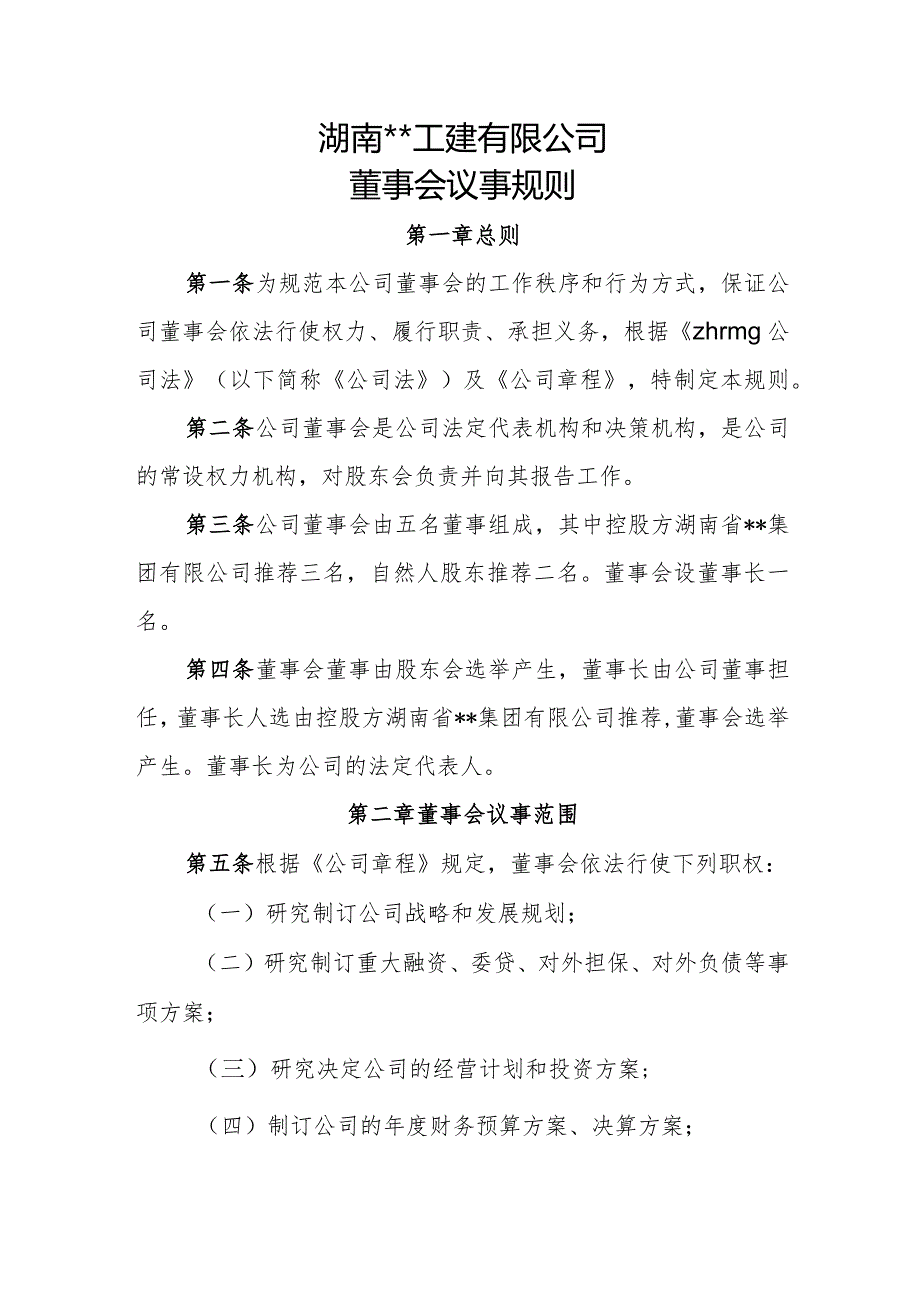 湖南**工建有限公司
董事会议事规则
第一章总则
第一条为规范本公司董事会的工作秩序和行为方式，保证公
司董事会依法行使权力、履行职责、承担义务，根据《zhrmg公
司法》（以下简称《公司法》）及《公司章程》，特制定本规则。
第二条公司董事会是公司法定代表机构和决策机构，是公司
的常设权力机构，对股东会负责并向其报告工作。
第三条公司董事会由五名董事组成，其中控股方湖南省**集
团有限公司推荐三名，自然人股东推荐二名。董事会设董事长一
名。
第四条董事会董事由股东会选举产生，董事长由公司董事担
任，董事长人选由控股方湖南省**集团有限公司推荐,董事会选举
产生。董事长为公司的法定代表人。
第二章董事会议事范围
第五条根据《公司章程》规定，董事会依法行使下列职权：
（一）研究制订公司战略和发展规划；
（二）研究制订重大融资、委贷、对外担保、对外负债等事
项方案；
（三）研究决定公司的经营计划和投资方案;
（四）制订公司的年度财务预算方案、决算方案；